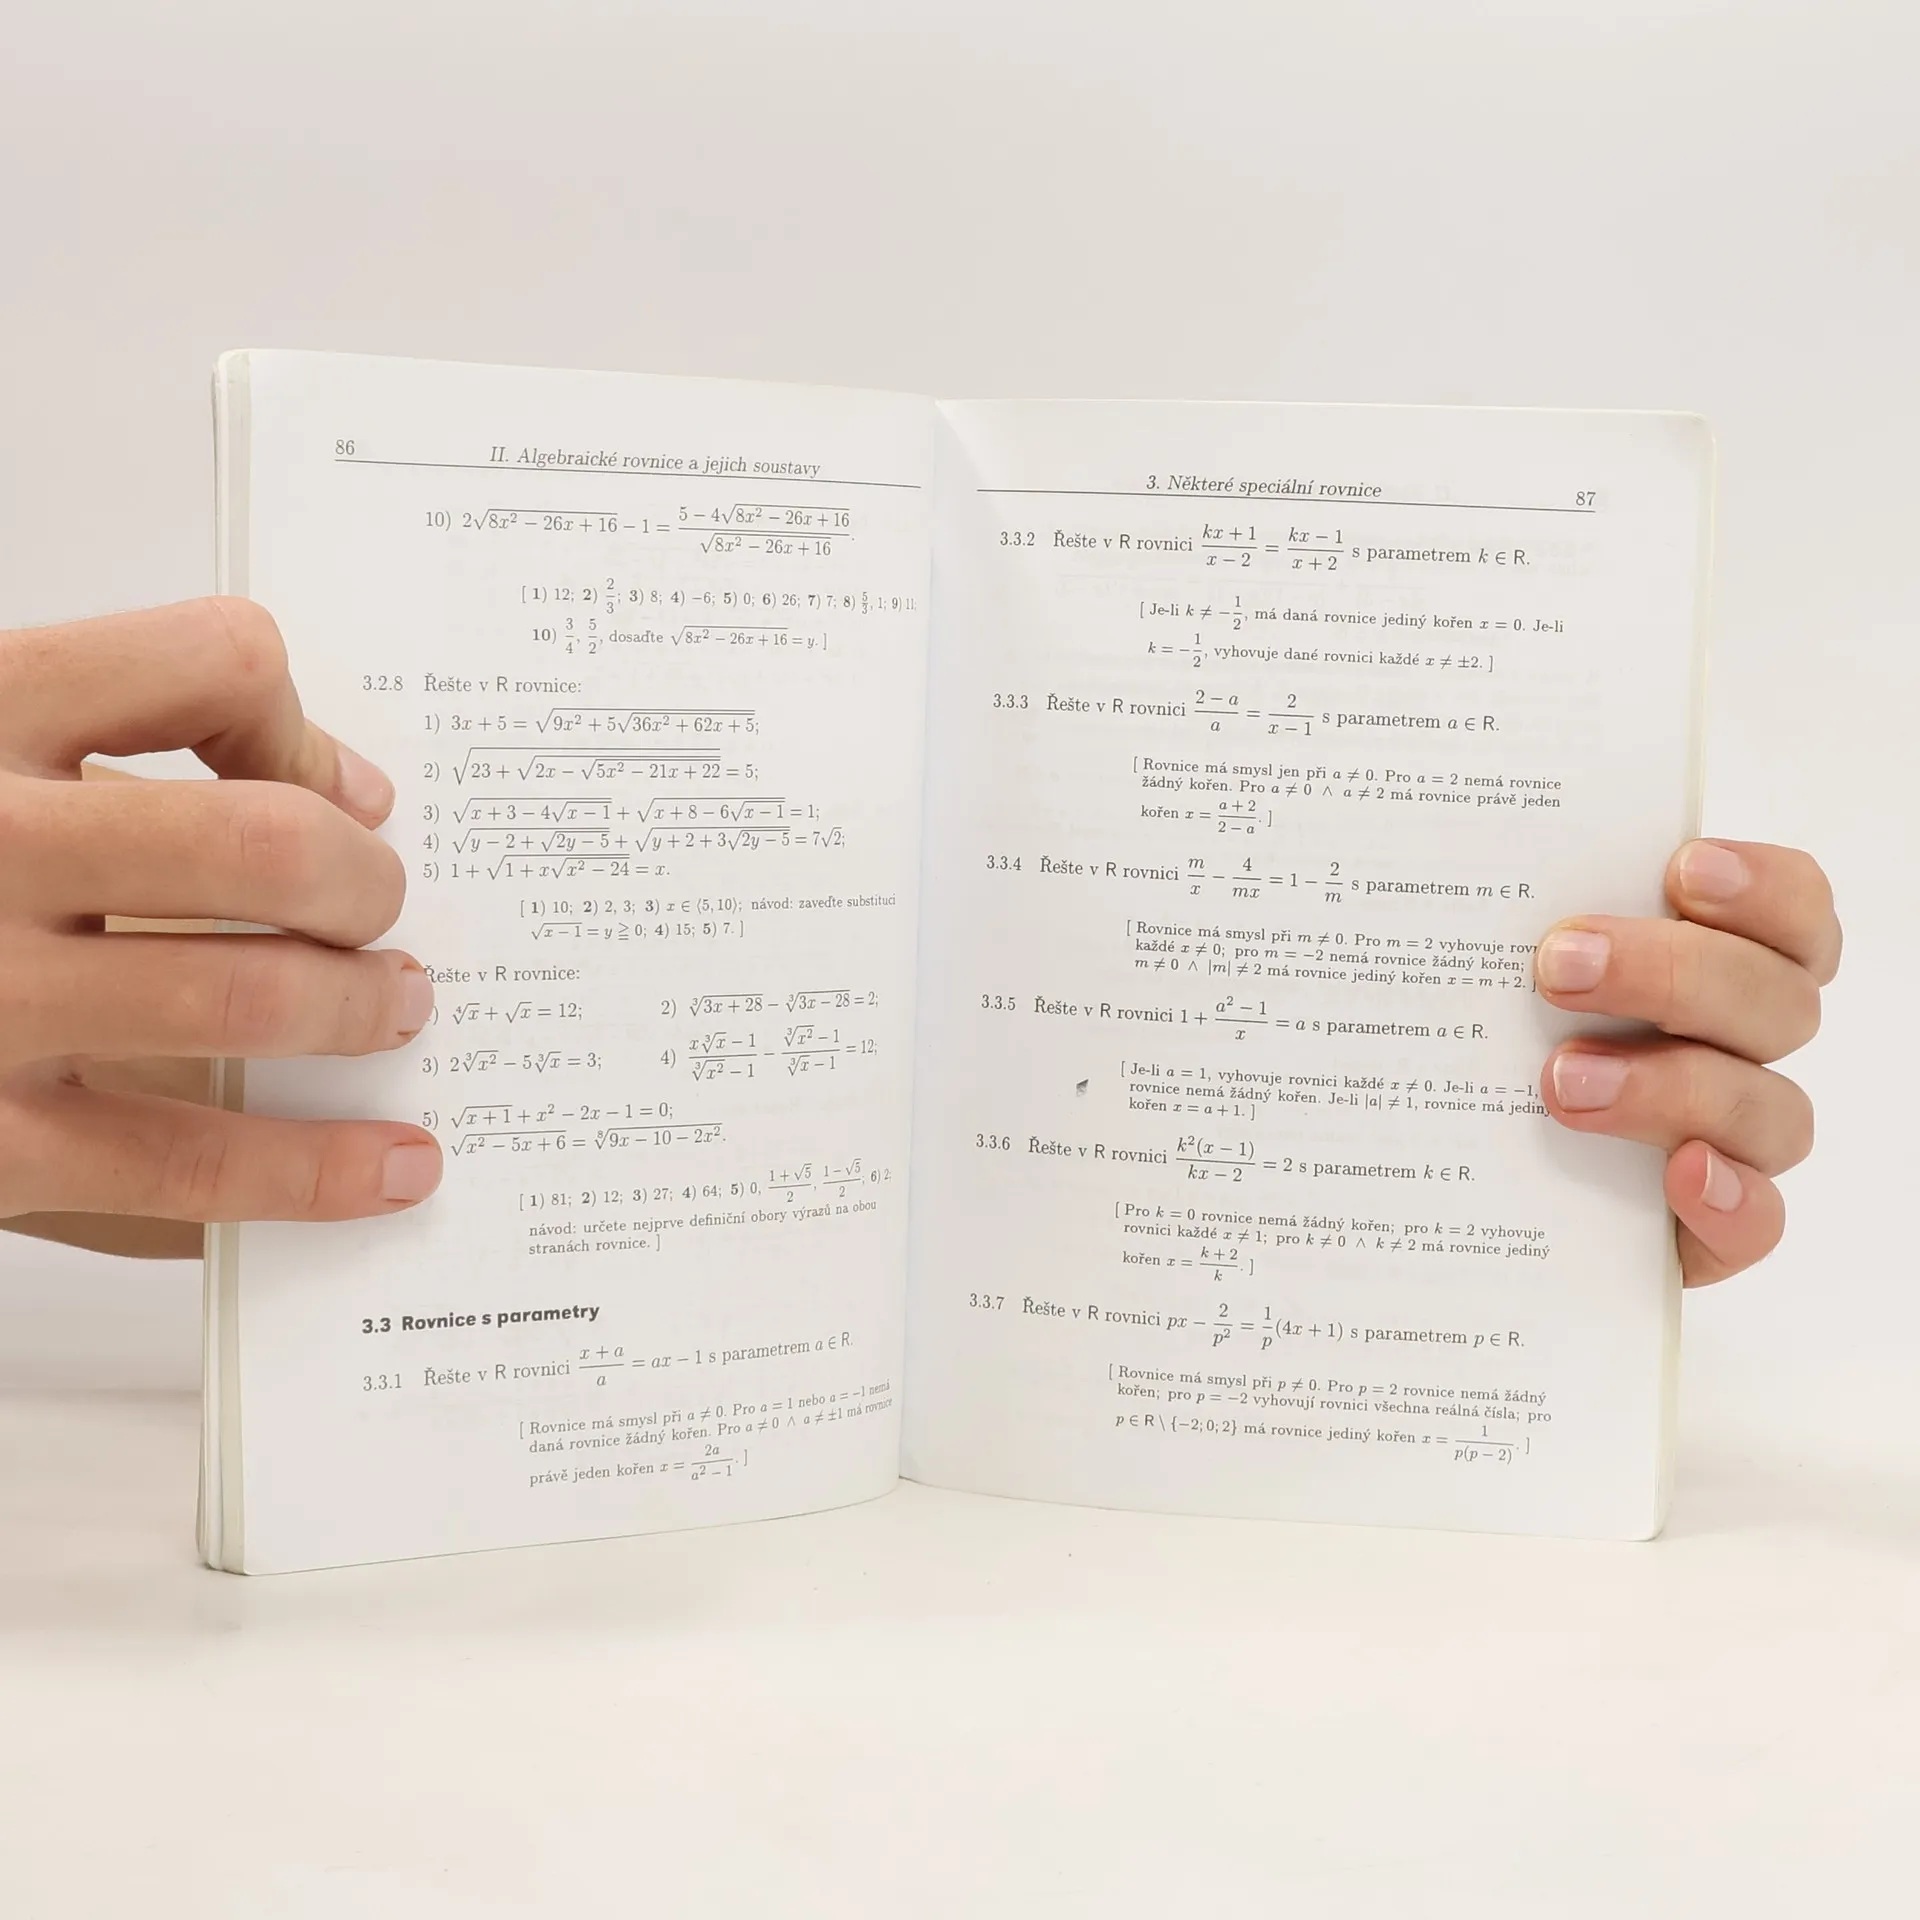 86
II. Algebraické rovnice a jejich soustavy
10) 2√(8x² − 26x + 16) − 1 = (5 − 4√(8x² − 26x + 16))/√(8x² − 26x + 16).
[ 1) 12; 2) 2/3; 3) 8; 4) −6; 5) 0; 6) 26; 7) 7; 8) 5/3, 1; 9) 11;
10) 3/4, 5/2, dosaďte √(8x² − 26x + 16) = y. ]
3.2.8 Řešte v R rovnice:
1) 3x + 5 = √(9x² + 5√(36x² + 62x + 5));
2) √(23 + √(2x − √(5x² − 21x + 22))) = 5;
3) √(x + 3 − 4√(x − 1)) + √(x + 8 − 6√(x − 1)) = 1;
4) √(y − 2 + √(2y − 5)) + √(y + 2 + 3√(2y − 5)) = 7√2;
5) 1 + √(1 + x√(x² − 24)) = x.
[ 1) 10; 2) 2, 3; 3) x ∈ ⟨5, 10⟩; návod: zaveďte substituci
√(x − 1) = y ≧ 0; 4) 15; 5) 7. ]
Řešte v R rovnice:
) ∜x + √x = 12; 2) ∛(3x + 28) − ∛(3x − 28) = 2;
3) 2∛(x²) − 5∛x = 3; 4) (x∛x − 1)/(∛(x²) − 1) − (∛(x²) − 1)/(∛x − 1) = 12;
5) √(x + 1) + x² − 2x − 1 = 0;
√(x² − 5x + 6) = ⁸√(9x − 10 − 2x²).
[ 1) 81; 2) 12; 3) 27; 4) 64; 5) 0, (1 + √5)/2, (1 − √5)/2; 6) 2;
návod: určete nejprve definiční obory výrazů na obou
stranách rovnice. ]
3.3 Rovnice s parametry
3.3.1 Řešte v R rovnici (x + a)/a = ax − 1 s parametrem a ∈ R.
[ Rovnice má smysl při a ≠ 0. Pro a = 1 nebo a = −1 nemá
daná rovnice žádný kořen. Pro a ≠ 0 ∧ a ≠ ±1 má rovnice
právě jeden kořen x = 2a/(a² − 1). ]
3. Některé speciální rovnice
87
3.3.2 Řešte v R rovnici (kx + 1)/(x − 2) = (kx − 1)/(x + 2) s parametrem k ∈ R.
[ Je-li k ≠ −1/2, má daná rovnice jediný kořen x = 0. Je-li
k = −1/2, vyhovuje dané rovnici každé x ≠ ±2. ]
3.3.3 Řešte v R rovnici (2 − a)/a = 2/(x − 1) s parametrem a ∈ R.
[ Rovnice má smysl jen při a ≠ 0. Pro a = 2 nemá rovnice
žádný kořen. Pro a ≠ 0 ∧ a ≠ 2 má rovnice právě jeden
kořen x = (a + 2)/(2 − a). ]
3.3.4 Řešte v R rovnici m/x − 4/(mx) = 1 − 2/m s parametrem m ∈ R.
[ Rovnice má smysl při m ≠ 0. Pro m = 2 vyhovuje rovn
každé x ≠ 0; pro m = −2 nemá rovnice žádný kořen;
m ≠ 0 ∧ |m| ≠ 2 má rovnice jediný kořen x = m + 2. ]
3.3.5 Řešte v R rovnici 1 + (a² − 1)/x = a s parametrem a ∈ R.
[ Je-li a = 1, vyhovuje rovnici každé x ≠ 0. Je-li a = −1,
rovnice nemá žádný kořen. Je-li |a| ≠ 1, rovnice má jediný
kořen x = a + 1. ]
3.3.6 Řešte v R rovnici k²(x − 1)/(kx − 2) = 2 s parametrem k ∈ R.
[ Pro k = 0 rovnice nemá žádný kořen; pro k = 2 vyhovuje
rovnici každé x ≠ 1; pro k ≠ 0 ∧ k ≠ 2 má rovnice jediný
kořen x = (k + 2)/k. ]
3.3.7 Řešte v R rovnici px − 2/p² = 1/p (4x + 1) s parametrem p ∈ R.
[ Rovnice má smysl při p ≠ 0. Pro p = 2 rovnice nemá žádný
kořen; pro p = −2 vyhovují rovnici všechna reálná čísla; pro
p ∈ R \ {−2; 0; 2} má rovnice jediný kořen x = 1/(p(p − 2)). ]